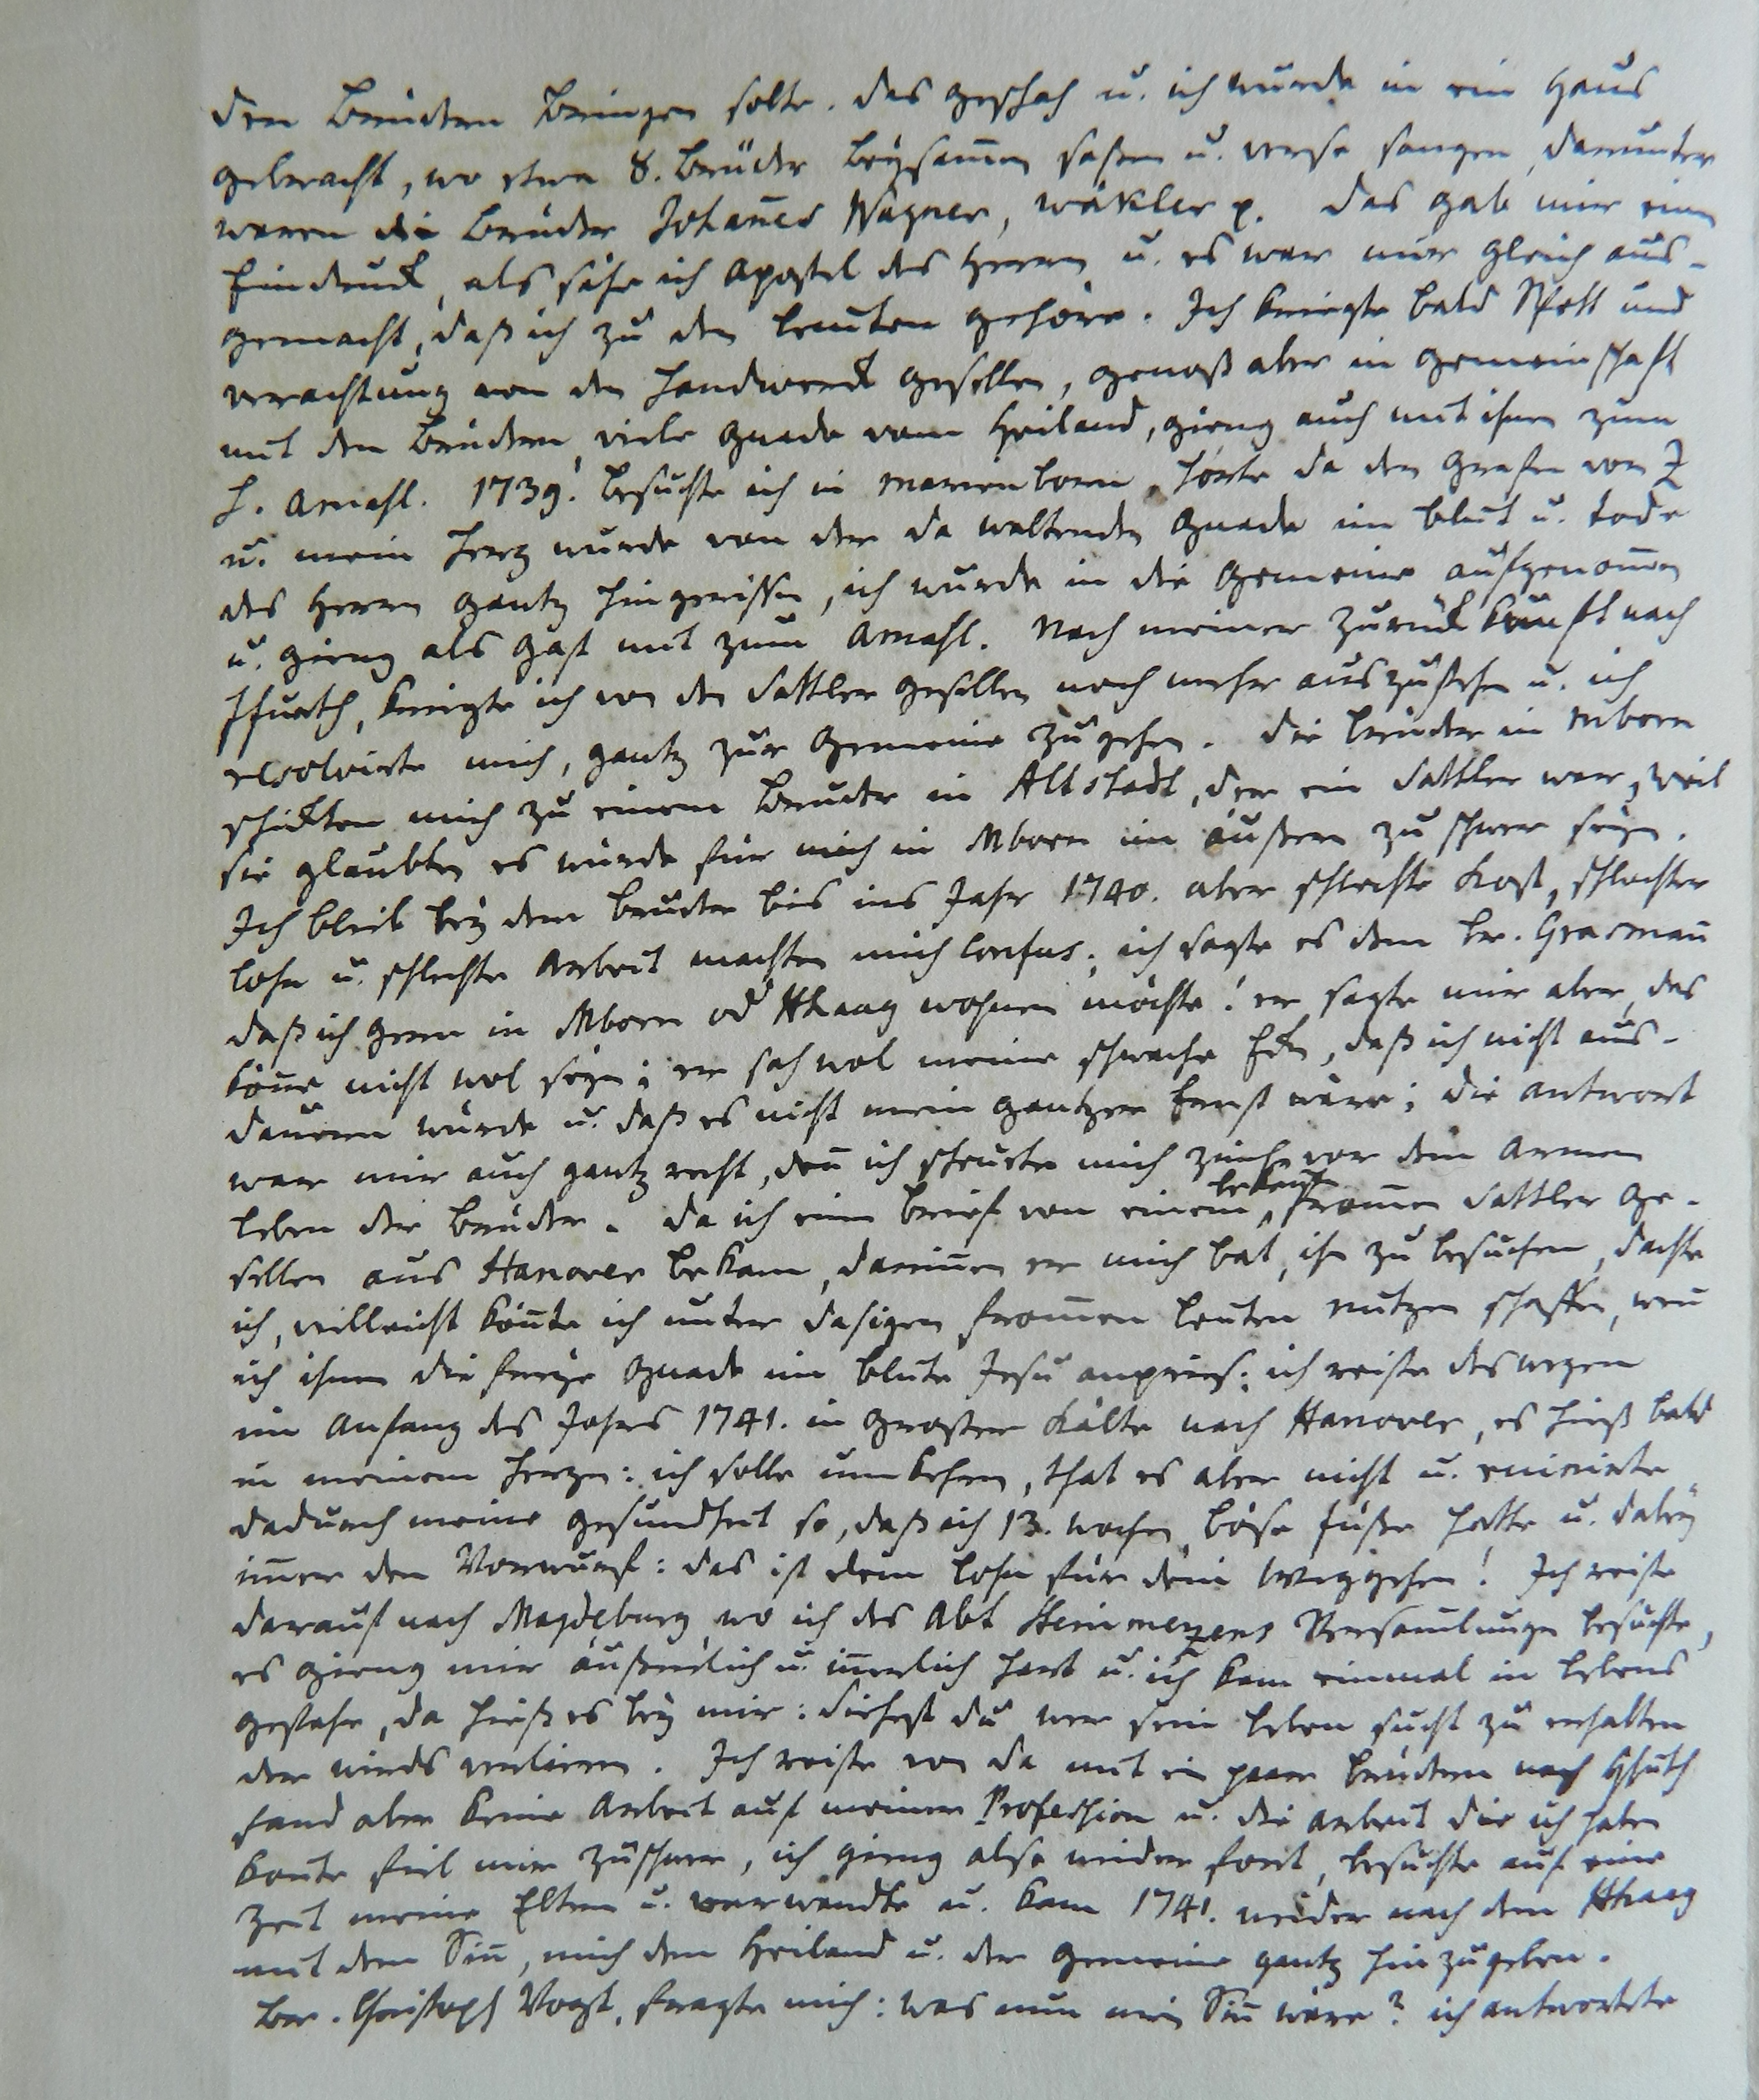 den Brüdern bringen solte. das geschah u. ich wurde in ein Haus
gebracht, wo etwa 8. Brüder beÿsam̄en saßen u. verse sangen, darunter
waren die Brüder Johan̄es Wagner, Wäkler p. das gab mir einen
Eindruck, als sähe ich Apostel des Herrn u. es war mir gleich aus-
gemacht, daß ich zu den Leuten gehöre. Ich kriegte bald Spott und
verachtung von den Handwerck gesellen, genoß aber in gemeinschaft
mit den Brüdern viele gnade vom Heiland, gieng auch mit ihnen zum
h. Amahl. 1739. besuchte ich in Marienborn, hörte da den Grafen von Z
u. mein Herz wurde von der da waltenden Gnade im blut u. tode
des Herrn gantz hingerissen, ich wurde in die Gemeine aufgenom̄en
u. gieng als Gast mit zum Amahl. Nach meiner Zurückkunft nach
kriegte ich von den Sattler gesellen noch mehr auszustehn u. ich
resolvirte mich, gantz zur Gemeine zu gehen. die Brüder in Mborn
schickten mich zu einem Bruder in Altstadt, der ein Sattler war, weil
sie glaubten es würde für mich in Mborn im äußern zu schwer seyn.
Ich blieb beÿ dem Bruder bis ins Jahr 1740. aber schlechte Kost, schlechter
Lohn u. schlechte Arbeit machten mich confus; ich sagte es dem Br. Grasman̄
daß ich gern in Mborn od HHaag wohnen möchte! er sagte mir aber, das
kön̄e nicht wol seÿn; er sah wol meine schwache Ecke, daß ich nicht aus-
dauern würde u. daß es nicht mein gantzer Ernst wäre; die antwort
war mir auch gantz recht, den̄ ich scheute mich ziemlich vor dem Armen
Leben der Brüder. da ich einen brief von einem bekanten from̄en Sattler ge-
sellen aus Hanover bekam, darin̄en er mich bat, ihn zu besuchen, dachte
ich, villeicht kön̄te ich unter dasigen from̄en Leuten nutzen schaffen, wen̄
ich ihnen die freye Gnade im blute Jesu anpries; ich reiste deswegen
im Anfang des Jahres 1741. in großer Kälte nach Hanover, es hieß bald
in meinem Herzen: ich solle umkehren, that es aber nicht u. ruinirte
dadurch meine gesundheit so, daß ich 13. wochen böse füße hatte u. dabeÿ
im̄er den Vorwurf: das ist dein Lohn für dein Weggehen! Ich reiste
darauf nach Magdeburg wo ich des Abt Steinmezens Versam̄lungen besuchte,
es gieng mir äußerlich u. in̄erlich hart u. ich kam einmal in Lebens
gefahr, da hieß es beÿ mir: Siehest du wer sein Leben sucht zu erhalten
der wirds verlieren. Ich reiste von da mit ein paar Brüdern nach Hhuth
fand aber keine Arbeit auf meiner Profession u. die arbeit die ich haben
konte fiel mir zu schwer, ich gieng also wieder fort, besuchte auf eine
Zeit meine Eltern u. verwandte u. kam 1741. wieder nach dem HHaag
mit dem Sin̄, mich dem Heiland u. der Gemeine gantz hinzugeben.
Br. Christoph Vogt, fragte mich: was nun mein Sin̄ wäre? ich antwortete